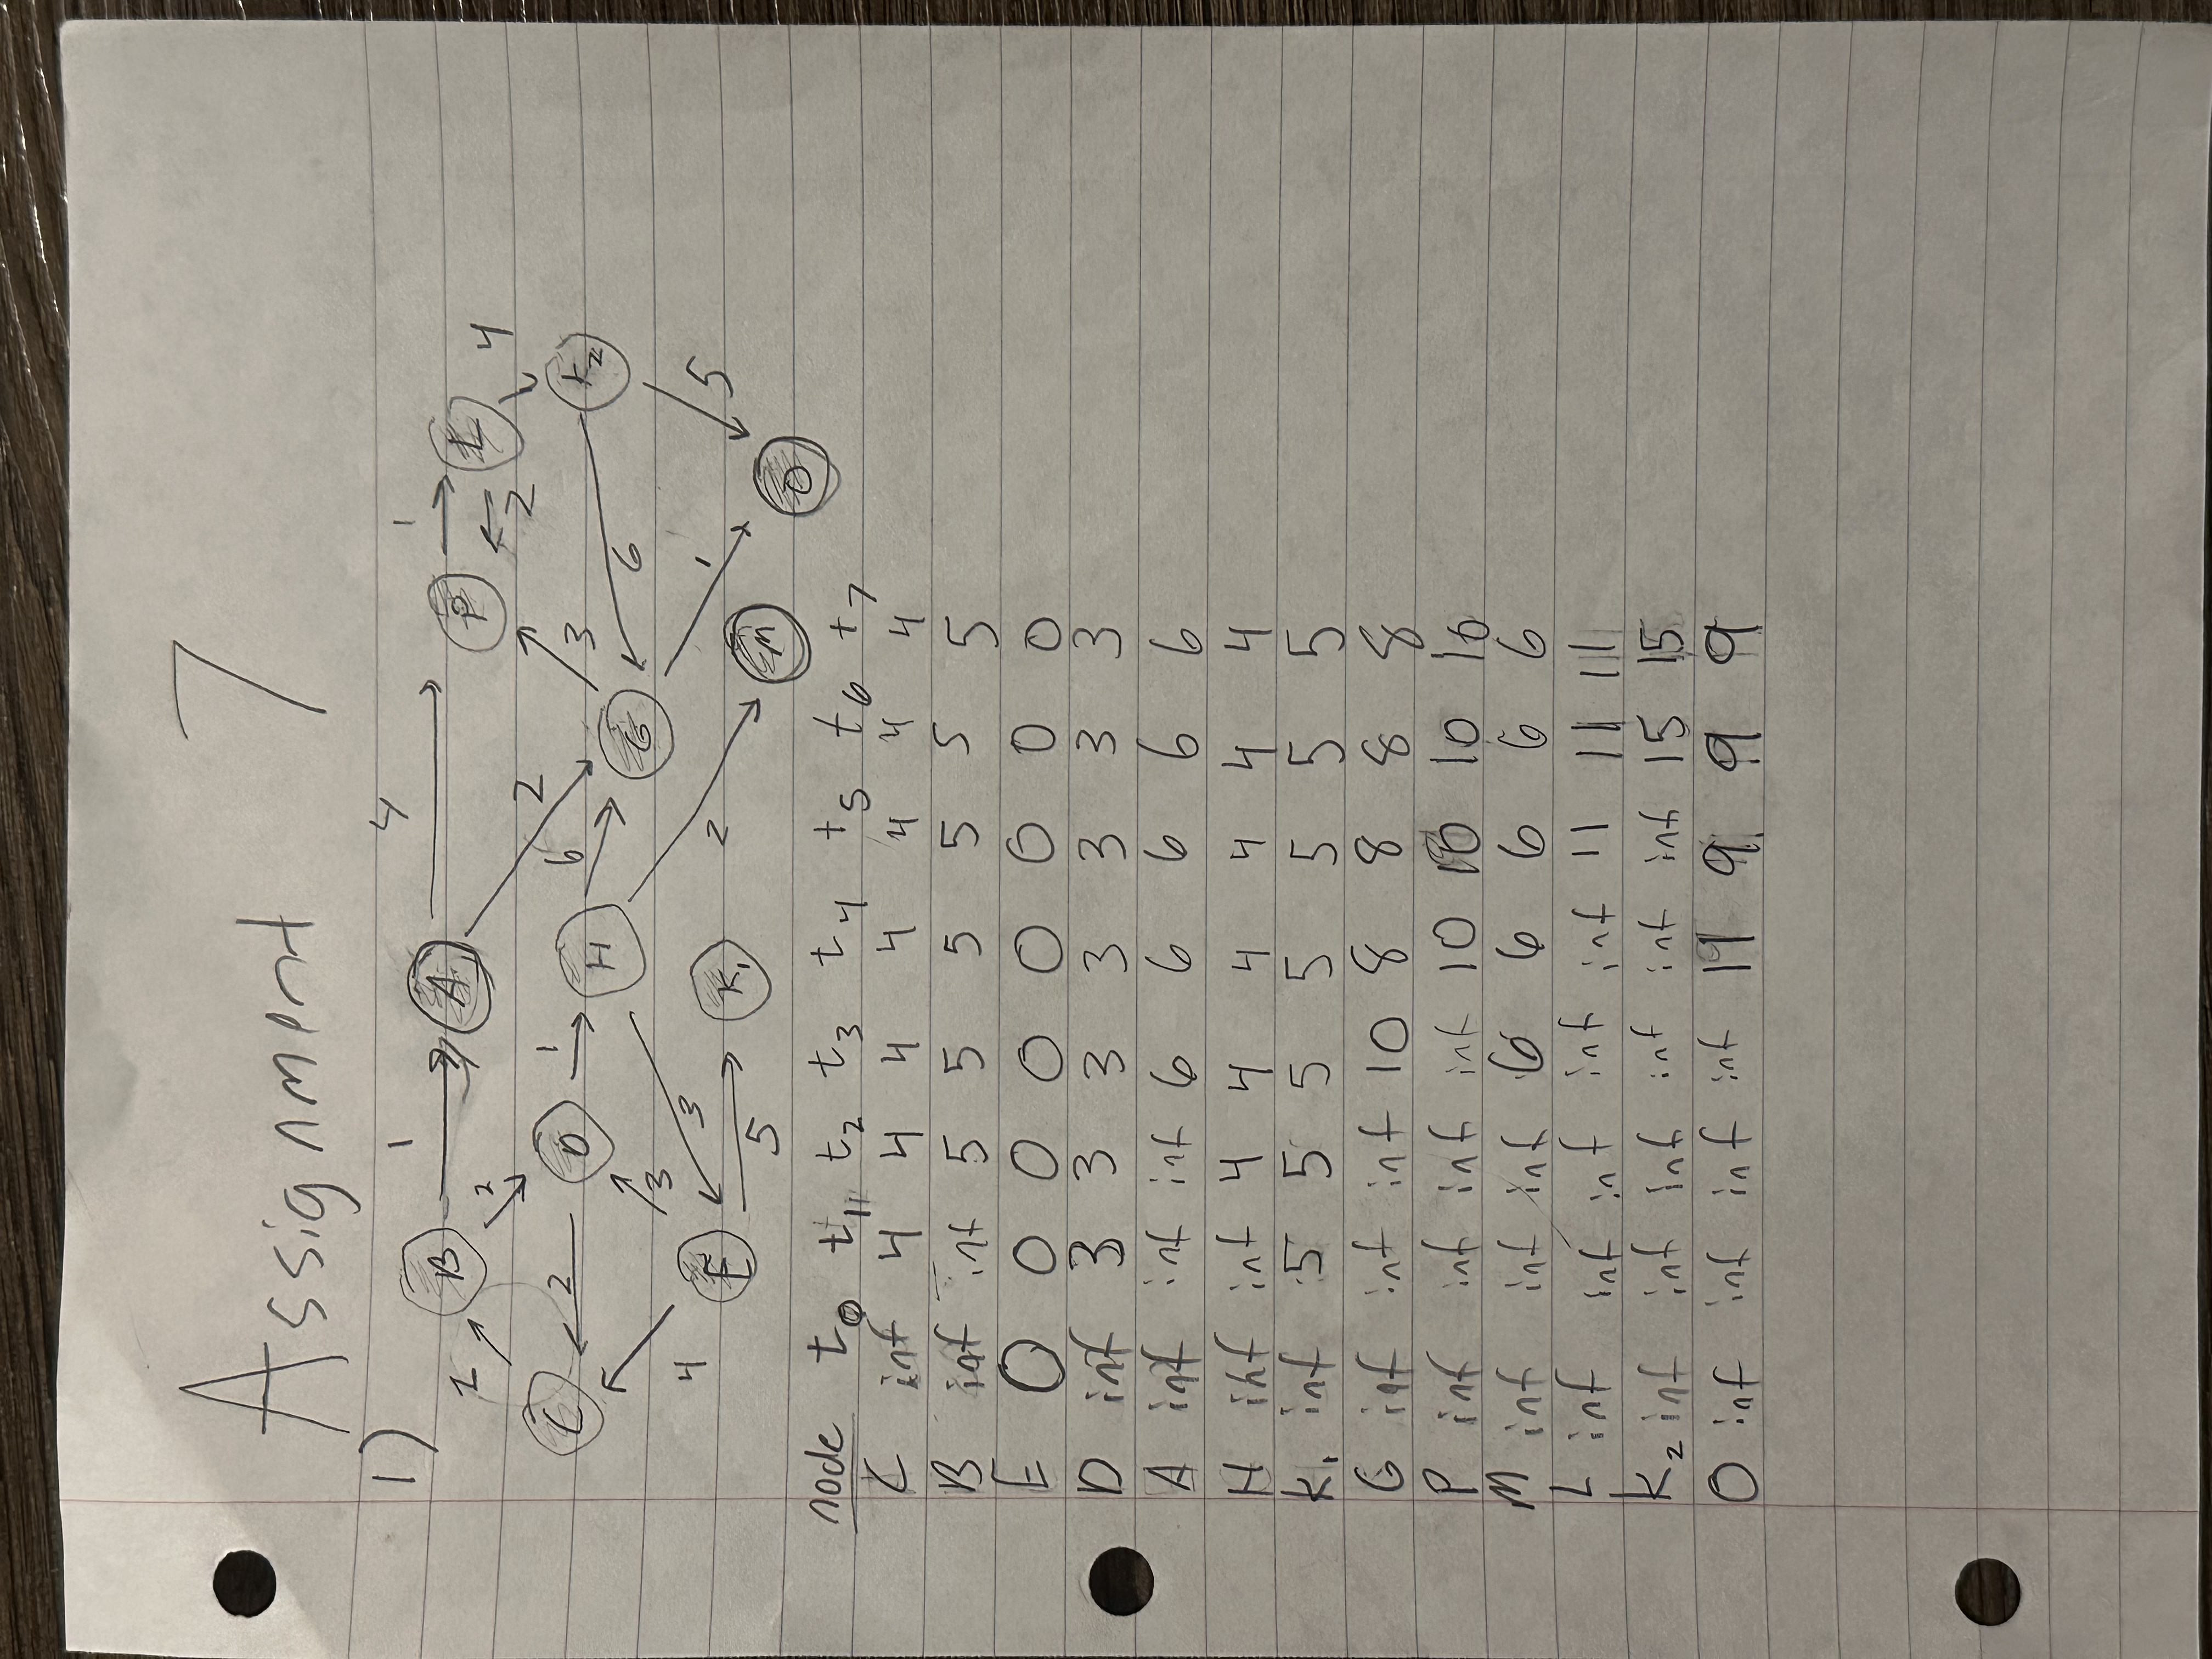 Assignment 7
1)
B 1 A 4 P 1 L
1 2 2 6 2 4
C 2 D 1 H G 3 K2
4 3 3 2 6 1 5
E 5 K1 M O
node t0 t1 t2 t3 t4 t5 t6 t7
C inf 4 4 4 4 4 4 4
B inf inf 5 5 5 5 5 5
E 0 0 0 0 0 0 0 0
D inf 3 3 3 3 3 3 3
A inf inf inf 6 6 6 6 6
H inf inf 4 4 4 4 4 4
K1 inf 5 5 5 5 5 5 5
G inf inf inf 10 8 8 8 8
P inf inf inf inf 10 10 10 10
M inf inf inf 6 6 6 6 6
L inf inf inf inf inf 11 11 11
K2 inf inf inf inf inf inf 15 15
O inf inf inf inf 9 9 9